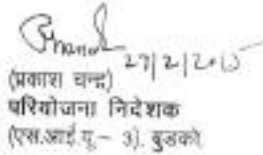 27/2/2015
(प्रकाश चन्द्र)
परियोजना निदेशक
(एस.आई.यू.– 3), बुडको